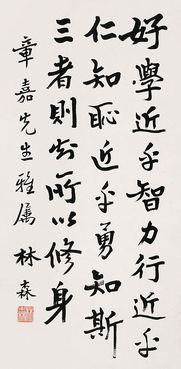 好學近乎智力行近乎
仁知恥近乎勇知斯
三者則知所以修身
章嘉先生雅屬 林森